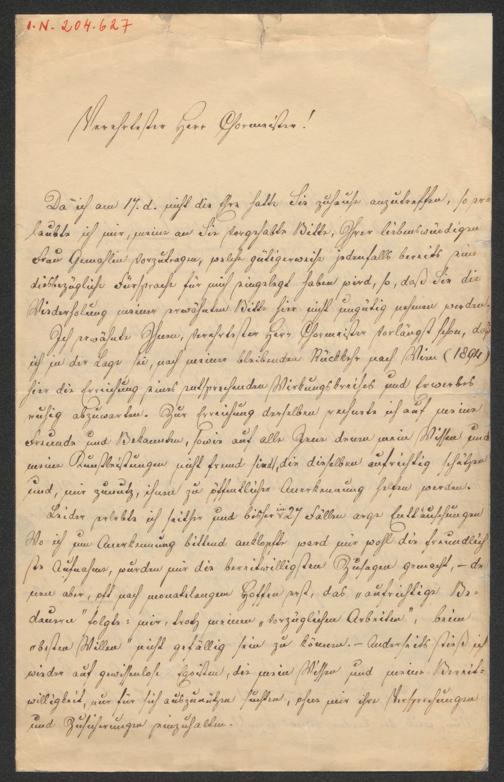 I.N. 204.627
Verehrtester Herr Chormeister!
Da ich am 17. d. nicht die Ehre hatte Sie zuhause anzutreffen, so er¬
laubte ich mir, meine an Sie vorgehabte Bitte, Ihrer liebenswürdigen
Frau Gemahlin vorzutragen, welche gütigerweise jedenfalls bereits eine
diesbezügliche Fürsprache für mich eingelegt haben wird, so, daß Sie die
Wiederholung meiner erwähnten Bitte hier nicht ungütig nehmen werden.
Ich erwähnte Ihnen, verehrtester Herr Chormeister vorlängst schon, daß
ich in der Lage sei, nach meiner bleibenden Rückkehr nach Wien (1894)
hier die Erreichung eines entsprechenden Wirkungskreises und Erwerbes
ruhig abzuwarten. Zur Erreichung derselben rechnete ich auf meine
Freunde und Bekannten, sowie auf alle Jene denen mein Wissen und
meine Kunstleistungen nicht fremd sind, die dieselben aufrichtig schätzen
und, mir zunutz, ihnen zu öffentlicher Anerkennung helfen werden.
Leider erlebte ich seither und bisher in 27 Fällen arge Enttäuschungen
Wo ich um Anerkennung bittend anklopfte ward mir wohl die freundlich¬
ste Aufnahme, wurden mir die bereitwilligsten Zusagen gemacht, – de¬
nen aber, oft nach monatelangem Hoffen erst, das „aufrichtige Be¬
dauern" folgte: mir, trotz meinen „vorzüglichen Arbeiten", beim
„besten Willen" nicht gefällig sein zu können. – Anderseits stieß ich
wieder auf gewissenlose Egoisten, die mein Wissen und meine Bereit¬
willigkeit, nur für sich auszunützen suchten, ohne mir ihre Versprechungen
und Zusicherungen einzuhalten.